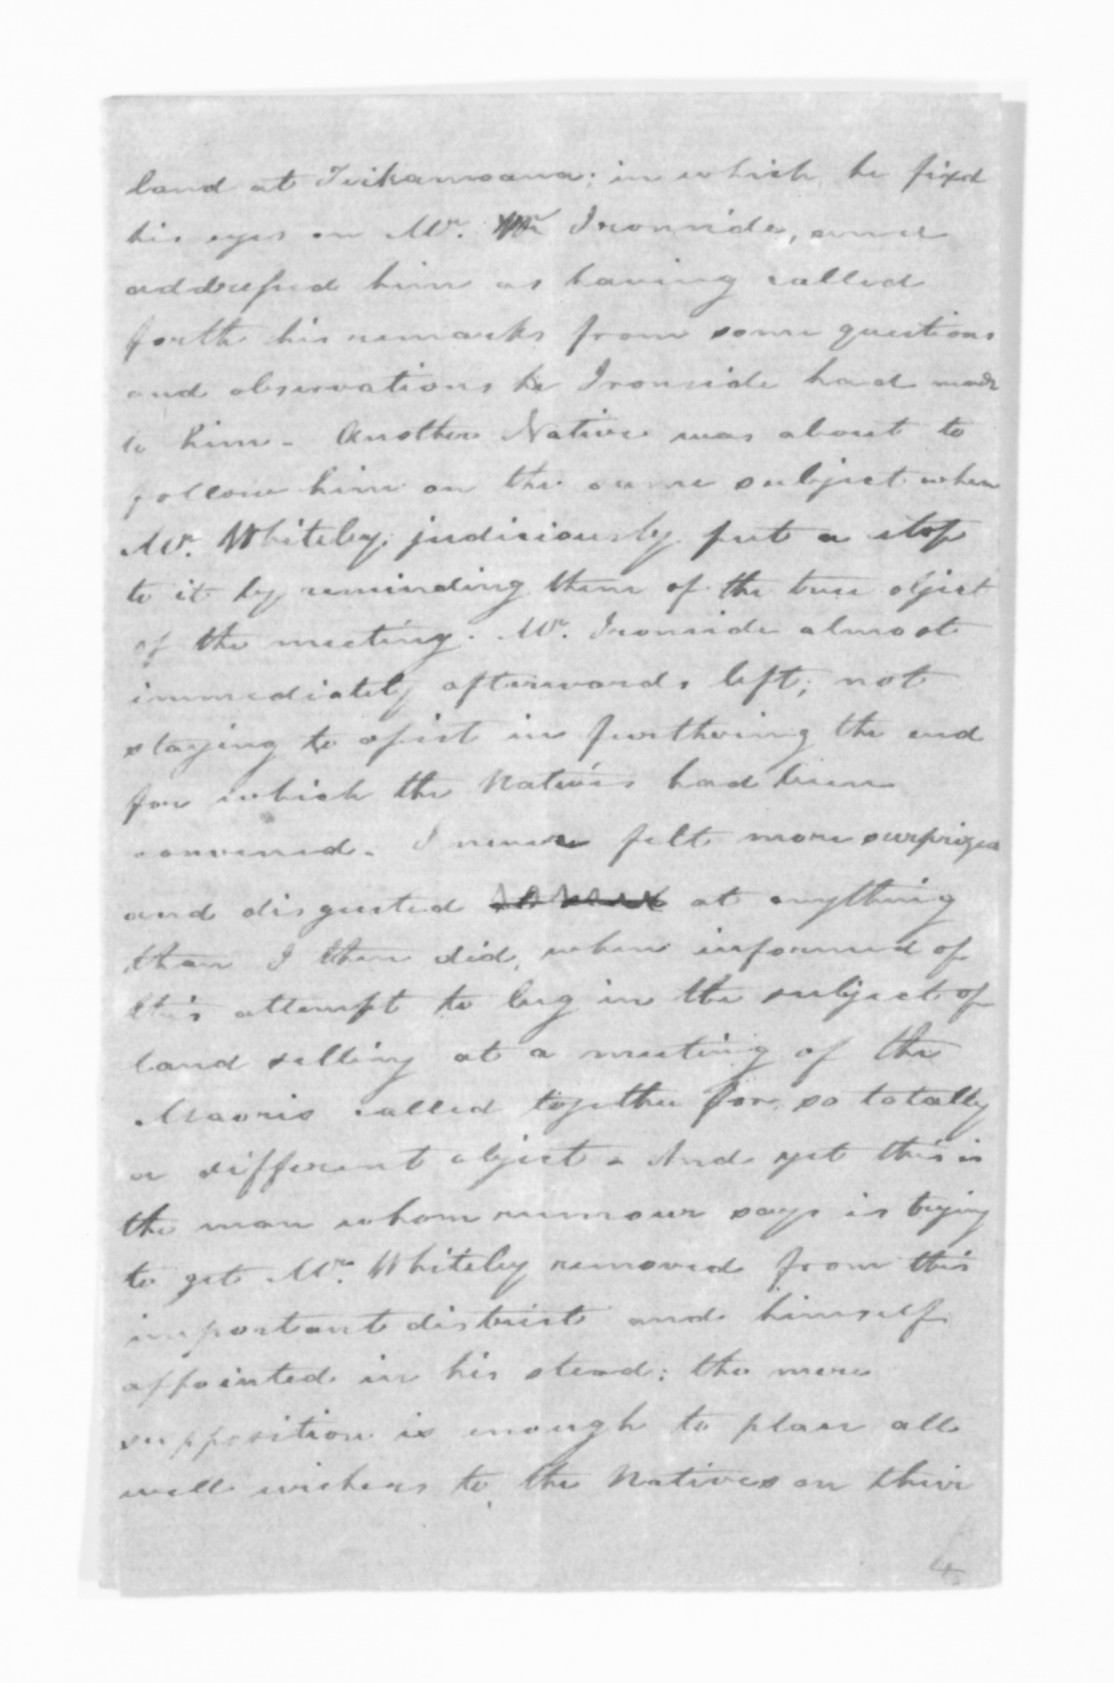 land at Teikamoana; in which he fixd
his eyes on Mr. Ironside, and
addressed him as having called
forth his remarks from some questions
and observations he Ironside had made
to him - Another Native was about to
follow him on the same subject when
Mr. Whiteley, judiciously put a stop
to it by reminding them of the true object
of the meeting. Mr. Ironside almost
immediately afterwards left; not
staying to assist in furthering the end
for which the Natives had been
convened. I never felt more surprized
and disgusted at anything
than I then did, when informed of
this attempt to lug in the subject of
land selling at a meeting of the
Maoris called together for so totally
a different object - And yet this is
the man whom rumour says is trying
to get Mr. Whiteley removed from this
important district and himself
appointed in his stead: the mere
supposition is enough to place all
well wishers to the Natives on their
4